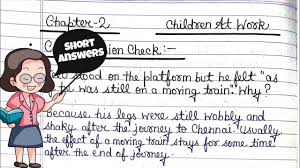 Chapter-2 Children At Work
SHORT ANSWERS
ion Check:-
stood on the platform but he felt "as
was still on a moving train". Why?
Because his legs were still wobbly and
shaky after the journey to Chennai. Usually
the effect of a moving train stays for some time
after the end of journey.